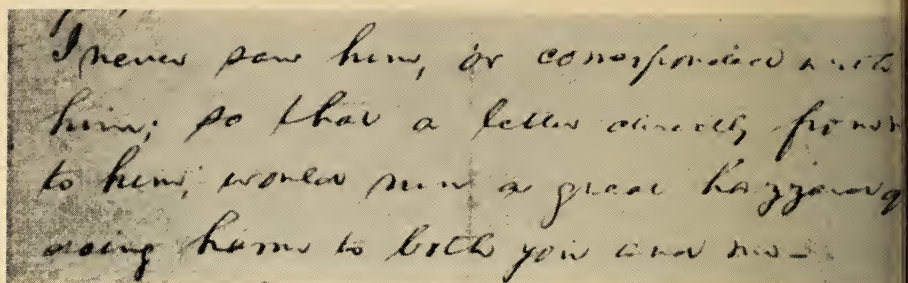 I never saw him, or corresponded with
him; so that a letter directly from
to him, would run a great hazzard
doing harm to both you and me—